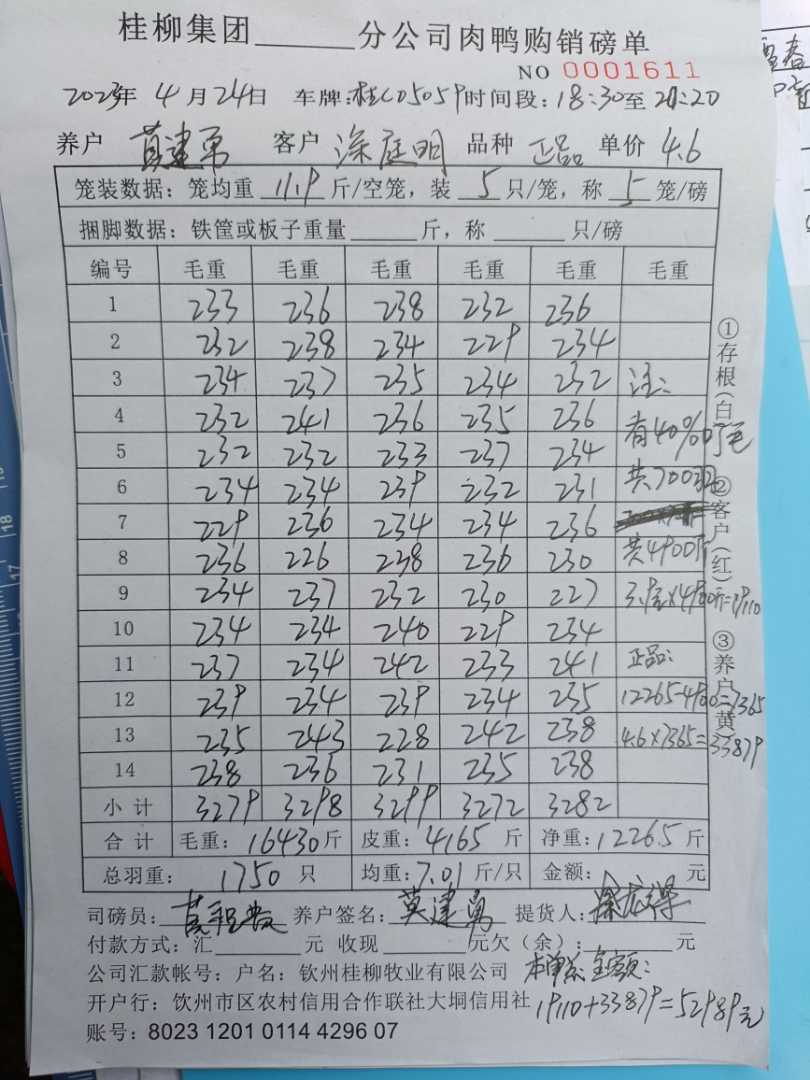 桂柳集团______分公司肉鸭购销磅单
NO 0001611
2023年 4月 24日 车牌:桂CD5059 时间段:18:30至20:20
养户 莫建勇 客户 涂庭明 品种 正品 单价 4.6
笼装数据:笼均重 11.9 斤/空笼,装 5 只/笼,称 5 笼/磅
捆脚数据:铁筐或板子重量______斤,称______只/磅
编号 毛重 毛重 毛重 毛重 毛重 毛重
1 233 236 238 232 236
2 232 238 234 229 234
3 234 237 235 234 232 注:
4 232 241 236 235 236 有40%
5 232 232 233 237 234 共700
6 234 234 239 232 231
7 229 236 234 234 236
8 236 226 238 236 230 共4900斤
9 234 237 232 230 227 3.9×4900斤=19110
10 234 234 240 229 234
11 237 234 242 233 241 正品:
12 239 234 239 234 235 12265-4900=7365
13 235 243 228 242 238 4.6×7365=33879
14 238 236 231 235 238
小计 3279 3298 3299 3272 3282
合计 毛重:16430斤 皮重:4165 斤 净重:12265斤
总羽重: 1750 只 均重:7.01 斤/只 金额: 元
司磅员: 养户签名:莫建勇 提货人:
付款方式:汇______元 收现______元欠(余):______元
公司汇款帐号:户名:钦州桂柳牧业有限公司 本单总金额:
开户行:钦州市区农村信用合作联社大垌信用社 19110+33879=52989元
账号:8023 1201 0114 4296 07
①存根(白)②客户(红)③养户(黄)